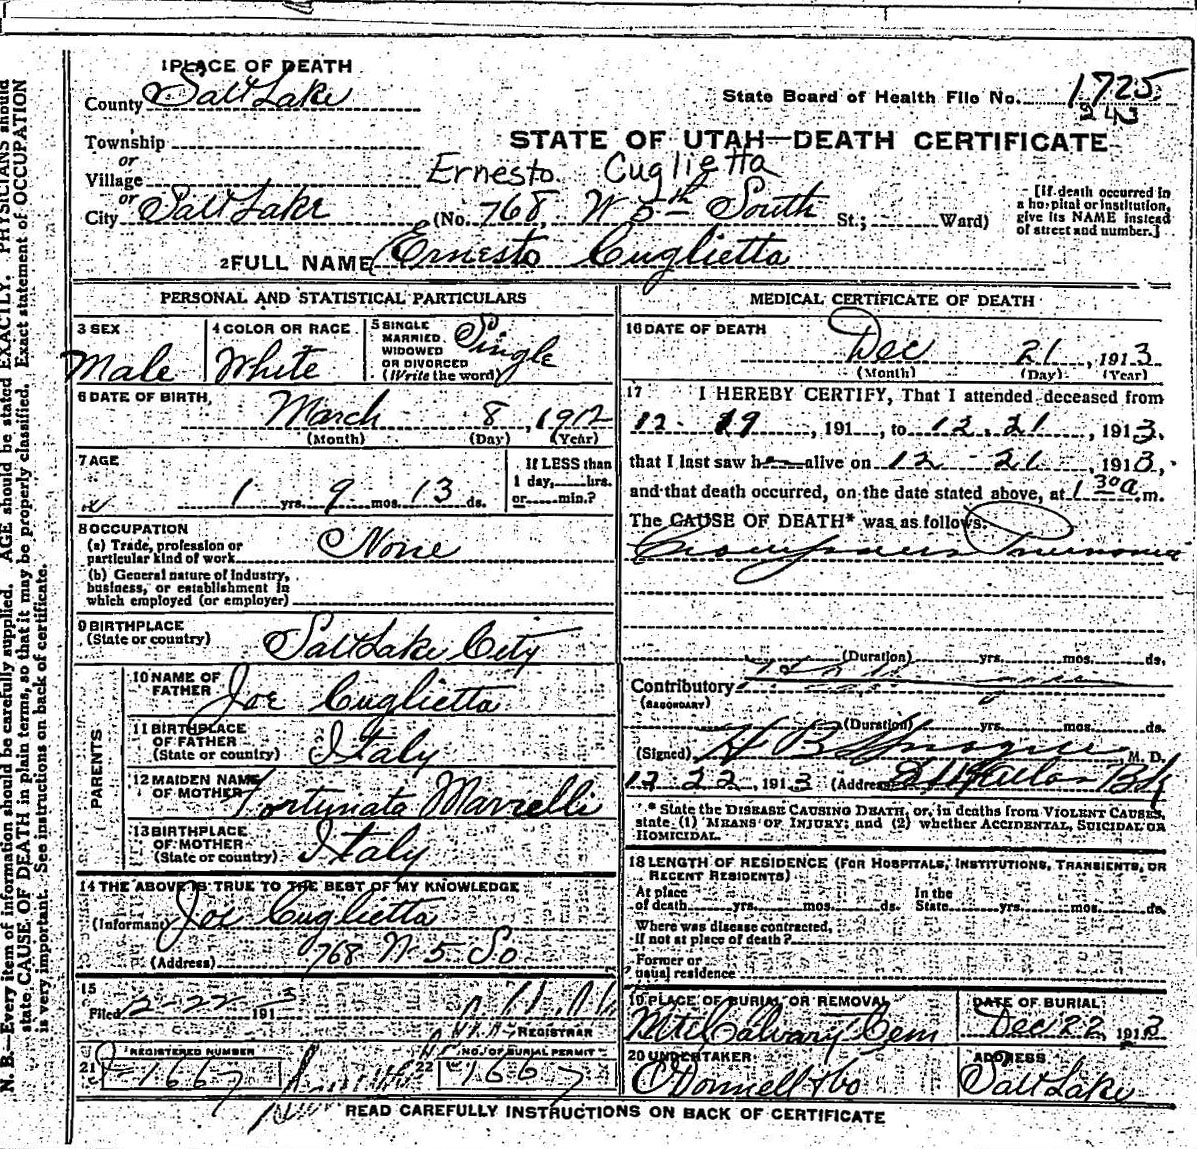 1 PLACE OF DEATH
County Salt Lake
State Board of Health File No. 1725
243
Township
or
Village
or
STATE OF UTAH—DEATH CERTIFICATE
Ernesto Cuglietta
City Salt Lake (No. 768, W 5th South St.; Ward)
[If death occurred in
a hospital or institution,
give its NAME instead
of street and number.]
2 FULL NAME Ernesto Cuglietta
PERSONAL AND STATISTICAL PARTICULARS
3 SEX
Male
4 COLOR OR RACE
White
5 SINGLE
MARRIED.
WIDOWED
OR DIVORCED
(Write the word)
Single
6 DATE OF BIRTH,
March 8, 1912
(Month) (Day) (Year)
7 AGE
1 yrs. 9 mos. 13 ds.
If LESS than
1 day, hrs.
or min.?
8 OCCUPATION
(a) Trade, profession or
particular kind of work None
(b) General nature of industry,
business, or establishment in
which employed (or employer)
9 BIRTHPLACE
(State or country) Salt Lake City
PARENTS
10 NAME OF
FATHER Joe Cuglietta
11 BIRTHPLACE
OF FATHER
(State or country) Italy
12 MAIDEN NAME
OF MOTHER Fortunata Marrelli
13 BIRTHPLACE
OF MOTHER
(State or country) Italy
14 THE ABOVE IS TRUE TO THE BEST OF MY KNOWLEDGE
(Informant) Joe Cuglietta
(Address) 768 W 5 So
15
Filed 12-22 1913
REGISTRAR
21 REGISTERED NUMBER
1667
22 NO. OF BURIAL PERMIT
1667
MEDICAL CERTIFICATE OF DEATH
16 DATE OF DEATH
Dec 21, 1913
(Month) (Day) (Year)
17 I HEREBY CERTIFY, That I attended deceased from
12. 19, 191 , to 12. 21, 1913,
that I last saw h alive on 12 21, 1913,
and that death occurred, on the date stated above, at 1 30 a.m.
The CAUSE OF DEATH* was as follows:
Pneumonia
(Duration) yrs. mos. ds.
Contributory
(SECONDARY)
(Duration) yrs. mos. ds.
(Signed) H B Sprague M. D.
12 22, 1913 (Address)
* State the DISEASE CAUSING DEATH, or, in deaths from VIOLENT CAUSES,
state (1) MEANS OF INJURY; and (2) whether ACCIDENTAL, SUICIDAL OR
HOMICIDAL.
18 LENGTH OF RESIDENCE (FOR HOSPITALS, INSTITUTIONS, TRANSIENTS, OR
RECENT RESIDENTS)
At place
of death yrs. mos. ds.
In the
State yrs. mos. ds.
Where was disease contracted,
if not at place of death?
Former or
usual residence
19 PLACE OF BURIAL OR REMOVAL
Mt Calvary Cem
DATE OF BURIAL
Dec 22 1913
20 UNDERTAKER
O'Donnell & Co
ADDRESS
Salt Lake
READ CAREFULLY INSTRUCTIONS ON BACK OF CERTIFICATE
N. B.—Every item of information should be carefully supplied. AGE should be stated EXACTLY. PHYSICIANS should
state CAUSE OF DEATH in plain terms, so that it may be properly classified. Exact statement of OCCUPATION
is very important. See instructions on back of certificate.